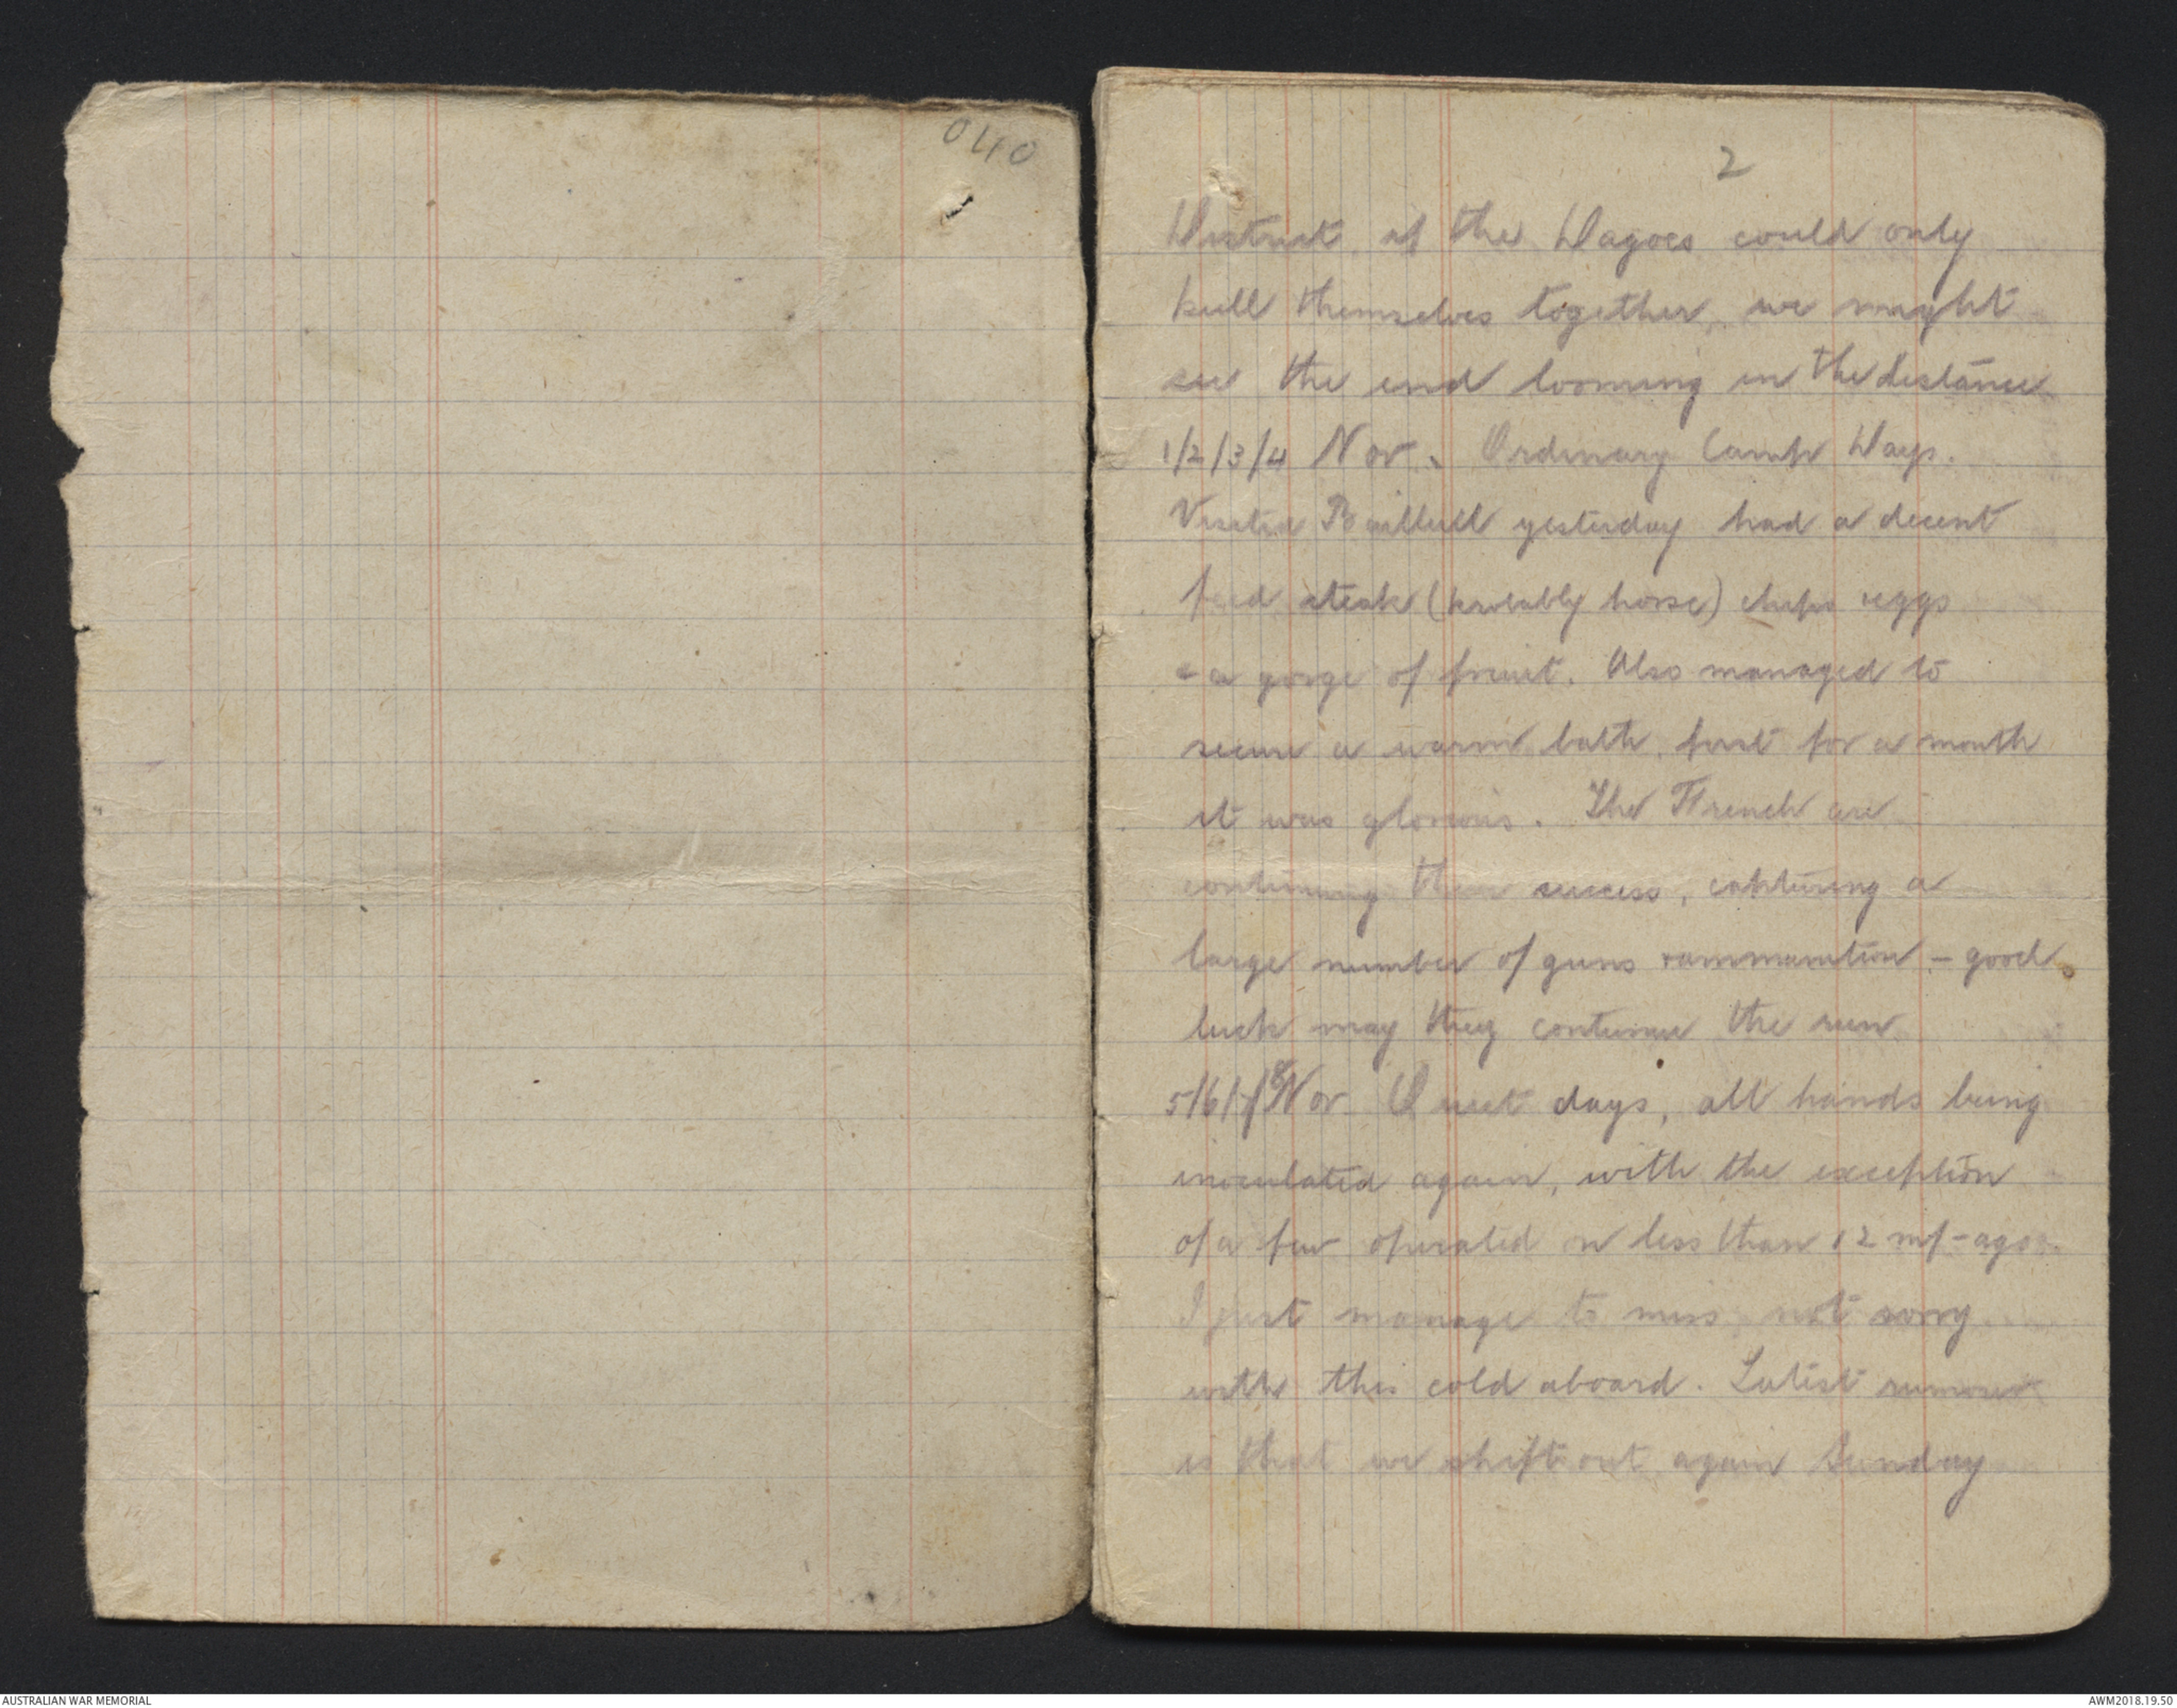 040
2
District, if the Dagoes could only
pull themselves together, we might
see the end looming in the distance
1/2/3/4 Nov. Ordinary Camp Days.
Visited Bailleull yesterday had a decent
feed steak (probably horse) chips &eggs
& a gorge of fruit. Also managed to
secure a warm bath, first for a month
it was glorious. The French are
continuing their success, capturing a
large number of guns &ammunition - good
luck may they continue the run
5/6/7/8 Nov Quiet days, all hands being
inoculated again, with the exception
of a few operated on less than 12 mf-ago.
I just manage to miss, not sorry
with this cold aboard. Latest rumour
is that we shift out again Sunday
AUSTRALIAN WAR MEMORIAL
AWM2018.19.50